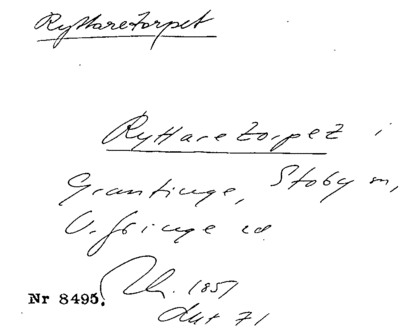 Ryttaretorpet
Ryttaretorpet i
Grantinge, Stoby sn,
V. Göinge hd
1857
Nr 8495.
71